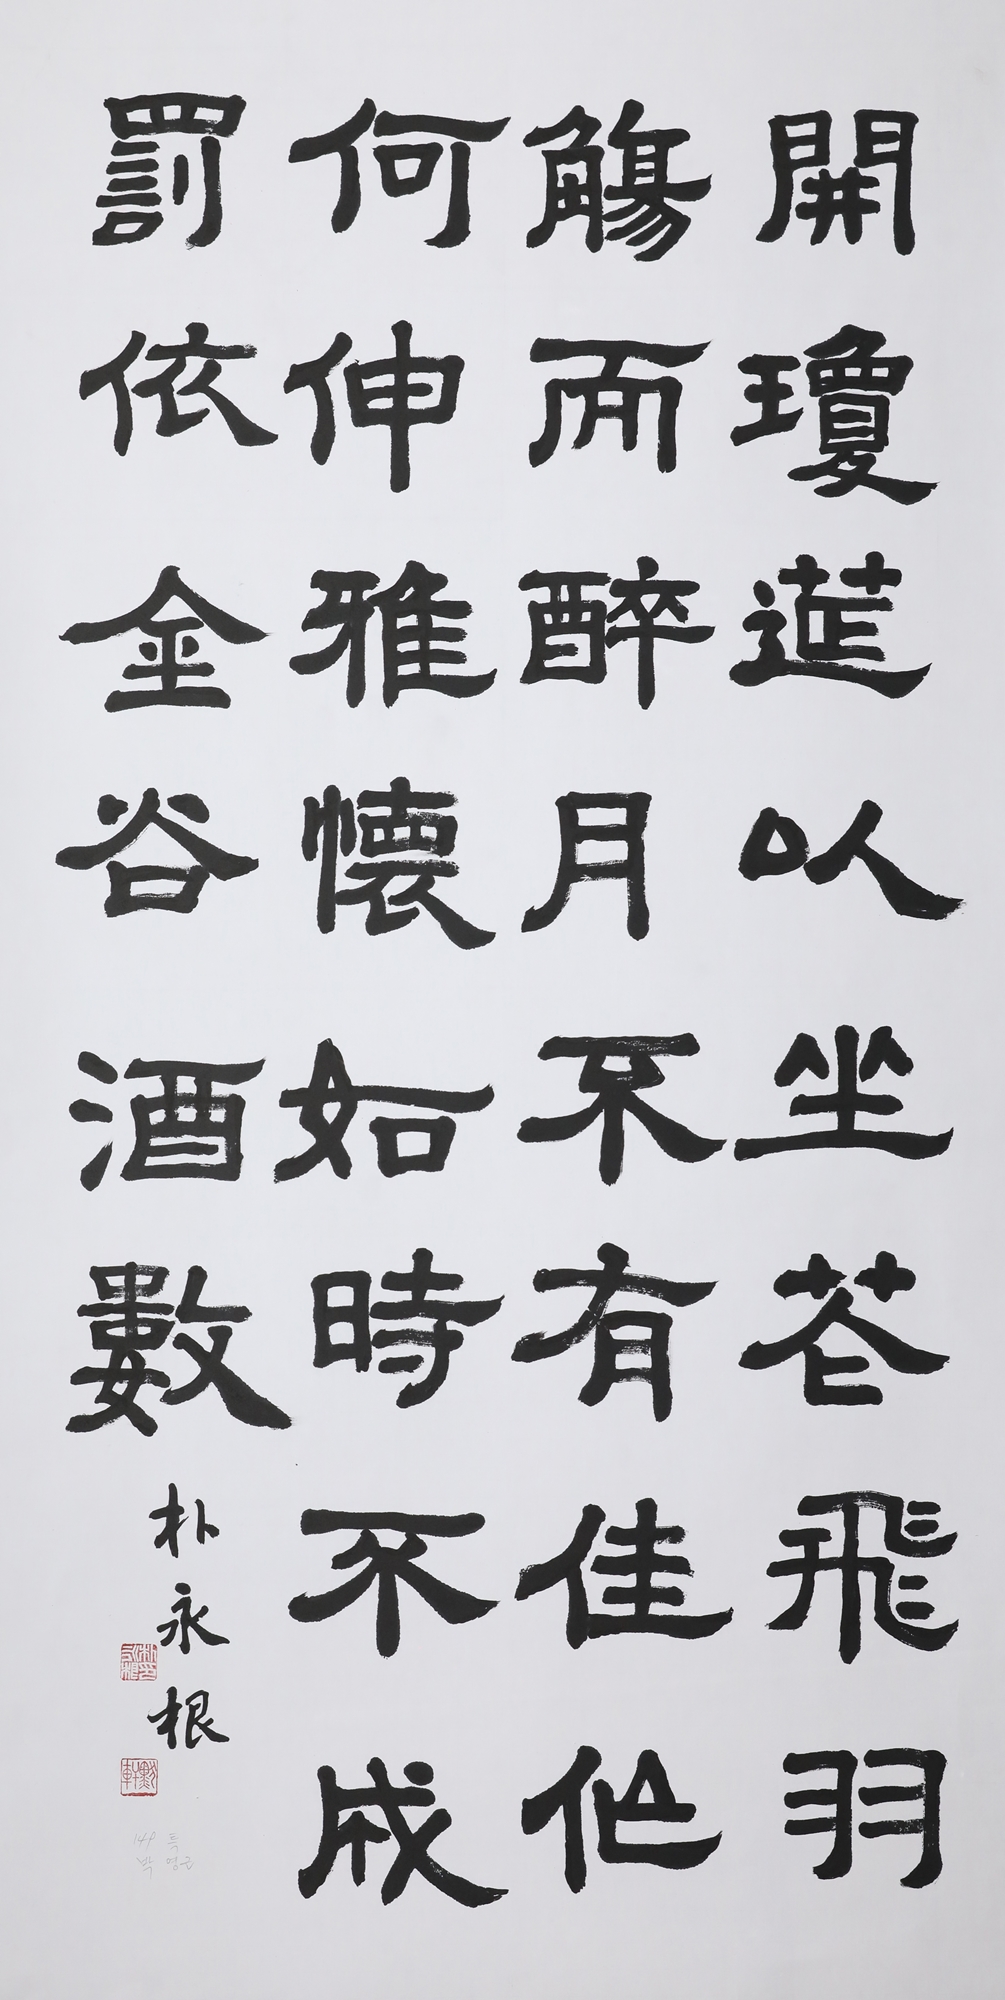 開瓊莚以坐花飛羽
觴而醉月不有佳作
何伸雅懷如時不成
罰依金谷酒數
朴永根
특
박영근